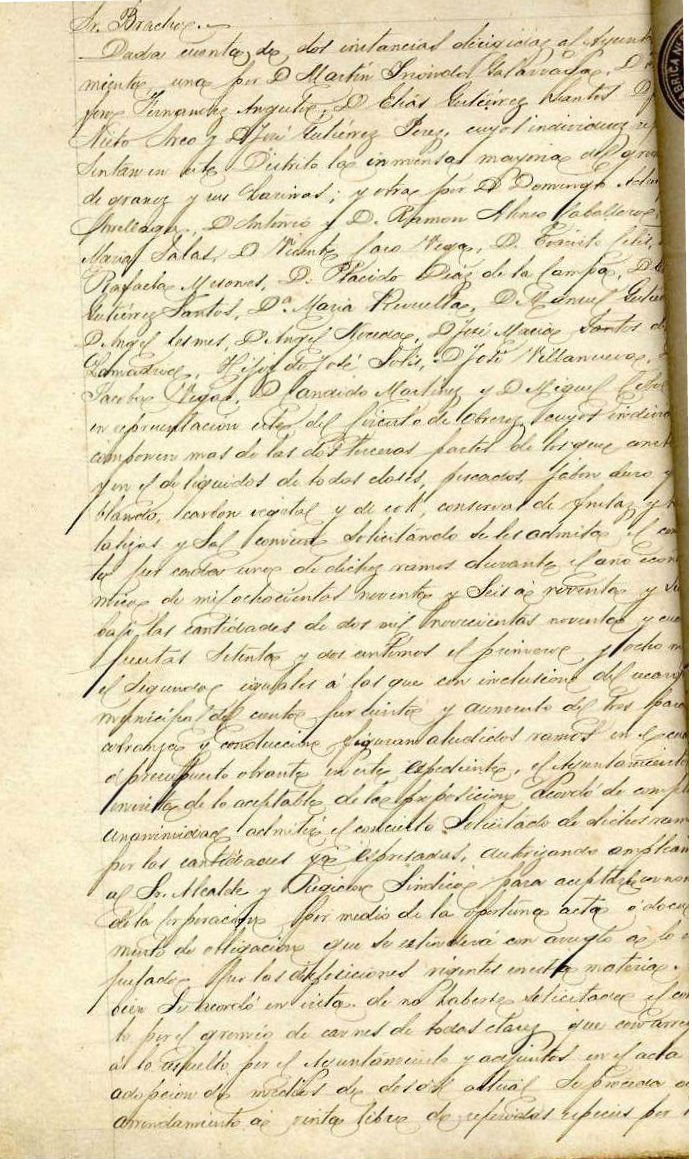 Sr. Bracho.
Dada cuenta de dos instancias dirigidas al Ayunta
miento, una por D Martín Galarraga, D
Fernandez Angulo, D. Elías Gutiérrez Santos D
Nieto Arco y D José Gutiérrez Perez, cuyos individuos re
sentan en este Distrito la inmensa mayoria del gre
de granos y sus harinas; y otra por D. Domingo
D Antonio y D. Ramon Alonso Caballero,
Maria Salas, D Vicente Vega, D. Celis,
Rafaela Mesones, D. Placido Diaz de la Campa, D
Gutiérrez Santos, D.ª Maria Revuelta, D. Manuel Gutie
D Angel Lesmes, D Angel D José Maria Santos de
Hijos de José Solis, D José Villanueva,
Vega, D Candido Martinez y D Miguel
en representación este del Circulo de Obreros, cuyos individ
componen mas de las dos terceras partes de los que
y en el de liquidos de todas clases, pescados, jabon duro y
blando, carbon vegetal y de cok, conservas de frutas y
talizas y Sal comun solicitando se les admita el con
to por cada uno de dichos ramos durante el año econ
mico de mil ochocientos noventa y seis á noventa y si
bajo las cantidades de dos mil novecientas noventa y
pesetas setenta y dos centimos el primero, y ocho m
el segundo iguales á las que con inclusion del recar
municipal del ciento por ciento y aumento del tres para
cobranza y conduccion figuran aludidos ramos en el
ó presupuesto obrante en este espediente, el Ayuntamiento
en vista de lo aceptable de la proposicion acordó de compl
unanimidad admitir el concierto solicitado de dichos ram
por las cantidades ya espresadas, autorizando ampliam
al Sr. Alcalde y Regidor Sindico para aceptarle en nom
de la Corporacion por medio de la oportuna acta ó docu
mento de obligacion que se estenderá con arreglo á lo
por las disposiciones vigentes en esta materia.
bien se acordó en vista de no haberse solicitado el con
to por el gremio de carnes de todas clases que con arre
á lo resuelto por el Ayuntamiento y adjuntos en el acta
adopcion de medios de del actual se proceda a
arrendamiento á venta libre de referidas especies por